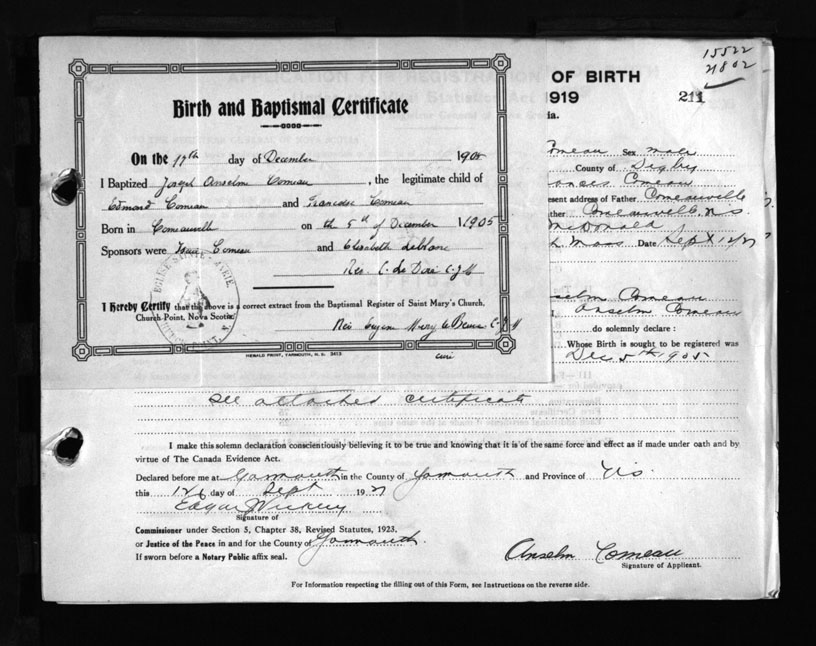 15522
21802
OF BIRTH
1919
211
Birth and Baptismal Certificate
On the 17th day of December 1905
I Baptized Joseph Anselme Comeau, the legitimate child of
Edmond Comeau and Comeau
Born in Comeauville on the 5th of December 1905
Sponsors were Comeau and Elizabeth Leblanc
Rev.
I Hereby Certify that the above is a correct extract from the Baptismal Register of Saint Mary's Church,
Church Point, Nova Scotia
HERALD PRINT, YARMOUTH, N. S. 3413
Comeau Sex male
County of Digby
Comeau
present address of Father Comeauville
Comeauville, N.S.
McDonald
Mass Date Sept 12/27
Anselm Comeau
Anselm Comeau
do solemnly declare :
Whose Birth is sought to be registered was
Dec 5th 1905
See attached certificate
I make this solemn declaration conscientiously believing it to be true and knowing that it is of the same force and effect as if made under oath and by
virtue of The Canada Evidence Act.
Declared before me at Yarmouth in the County of Yarmouth and Province of N.S.
this 12 day of Sept 1927
Edgar
Signature of
Commissioner under Section 5, Chapter 38, Revised Statutes, 1923.
or Justice of the Peace in and for the County of Yarmouth
If sworn before a Notary Public affix seal.
Anselm Comeau
Signature of Applicant.
For Information respecting the filling out of this Form, see Instructions on the reverse side.